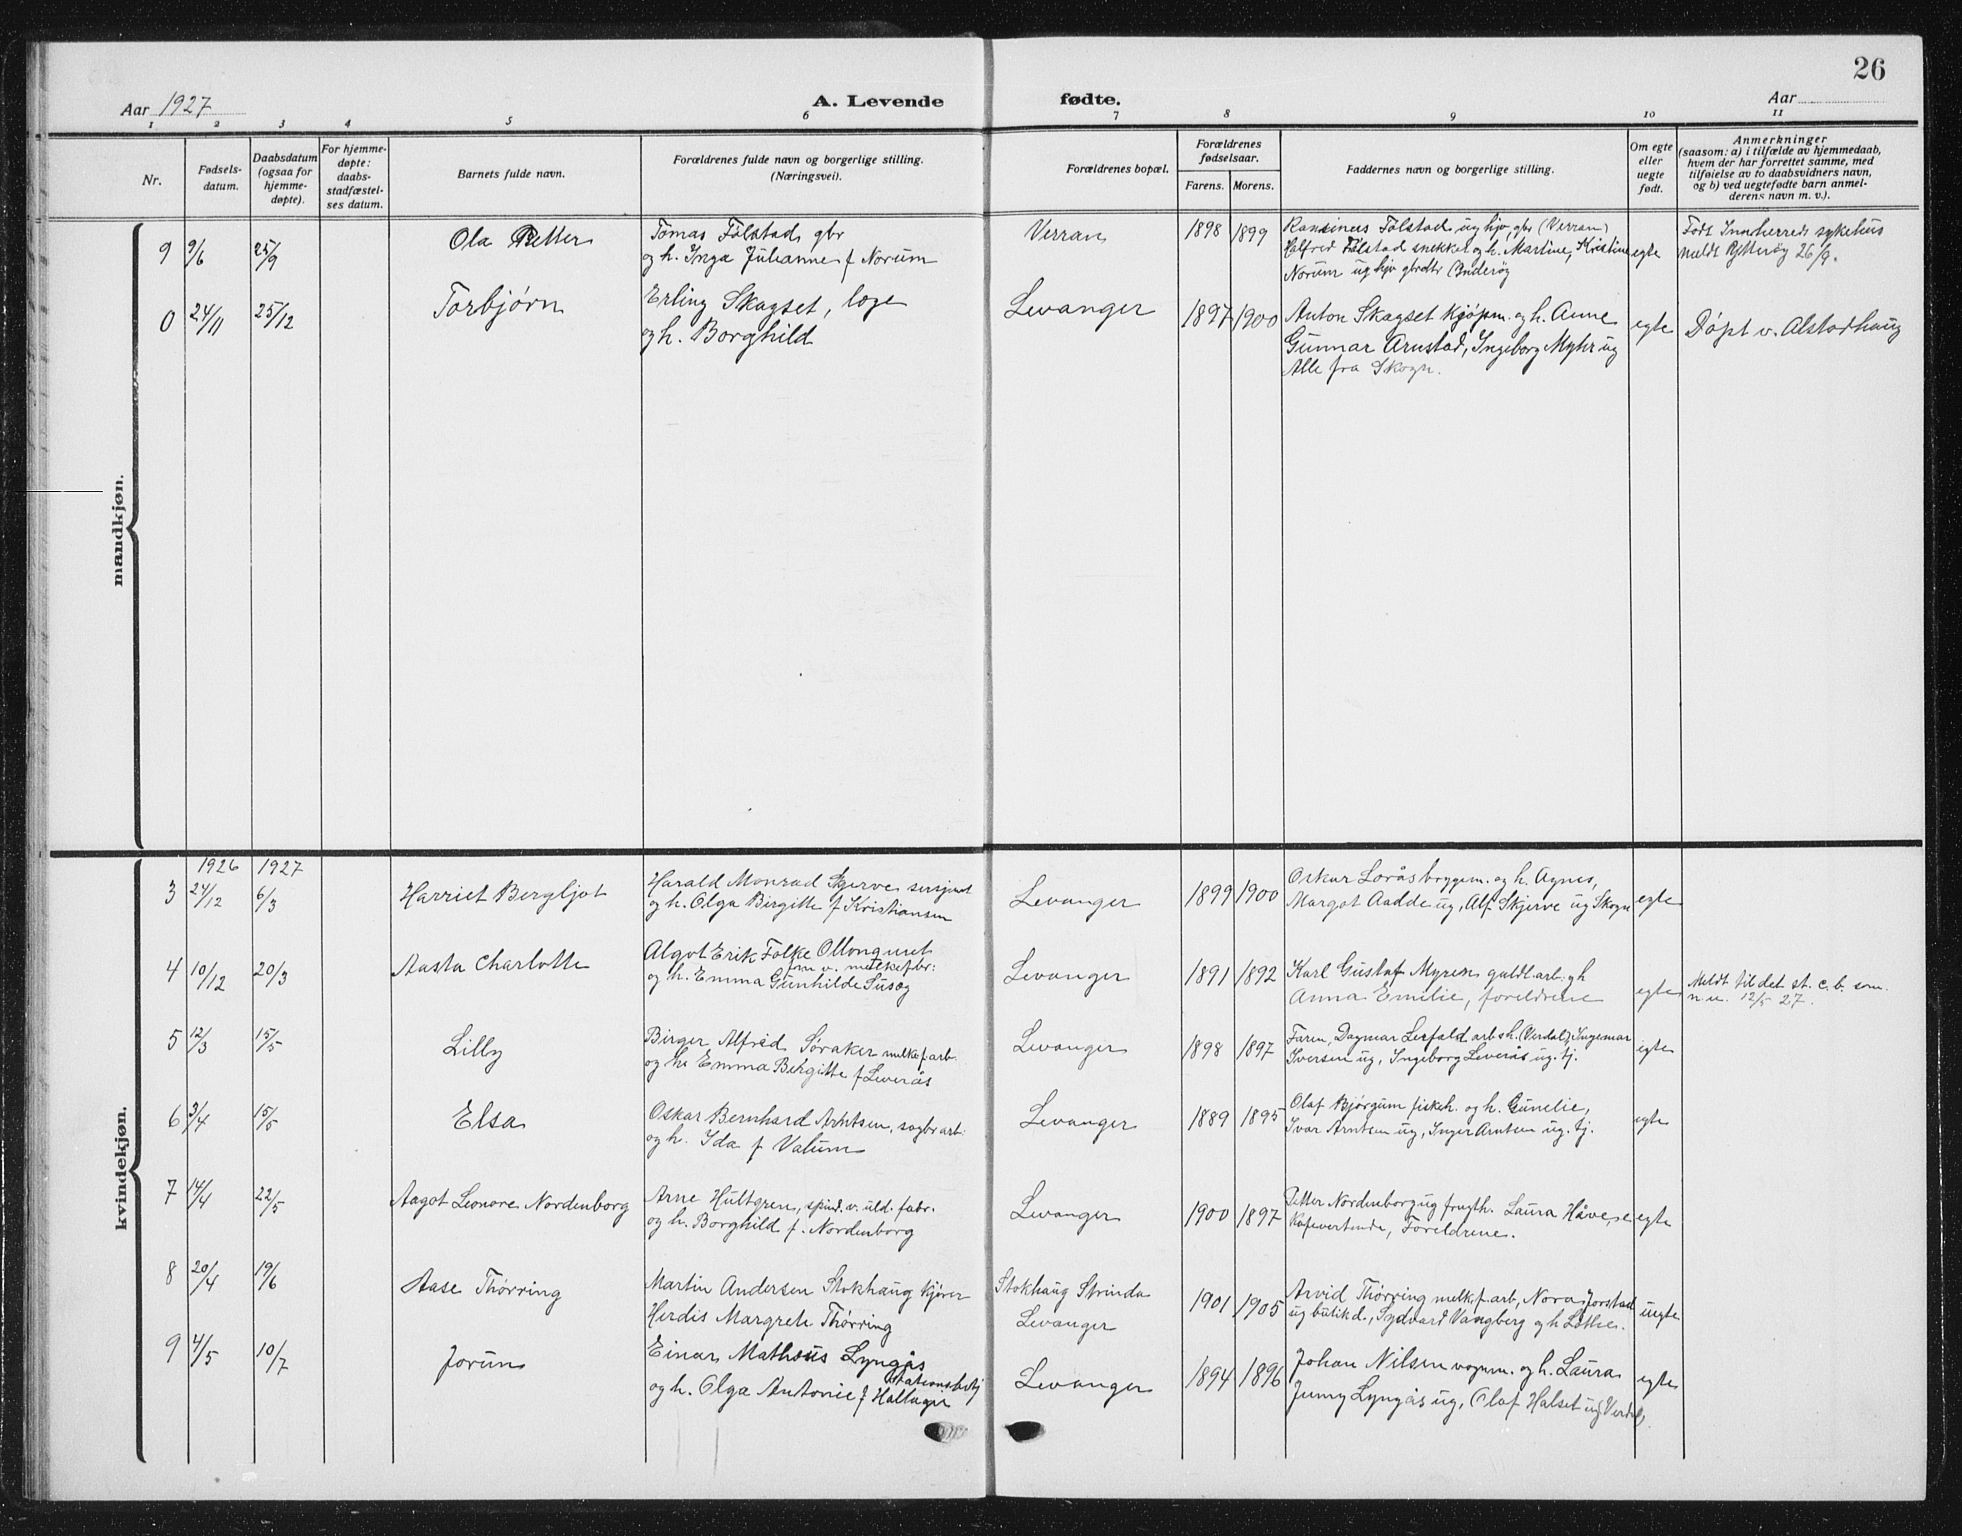 26
Aar 1927
A. Levende
fødte.
Aar
1 2 3 4 5 6 7 8 9 10 11
Nr.
Fødsels-
datum.
Daabsdatum
(ogsaa for
hjemme-
døpte).
For hjemme-
døpte:
daabs-
stadfæstel-
ses datum.
Barnets fulde navn.
Forældrenes fulde navn og borgerlige stilling.
(Næringsvei).
Forældrenes bopæl.
Forældrenes
fødselsaar.
Farens. Morens.
Faddernes navn og borgerlige stilling.
Om egte
eller
uegte
født.
Anmerkninger
(saasom: a) i tilfælde av hjemmedaab,
hvem der har forrettet samme, med
tilføielse av to daabsvidners navn,
og b) ved uegtefødte barn anmel-
derens navn m. v.).
mandkjøn.
9 9/6 25/9
Ola Petter
Tomas Følstad gbr
og h. Inga Julianne f Norum
Verran
1898 1899
Følstad ug hjv. gbr (Verran)
Halfred Følstad snekker og h. Martine, Kristine
Norum ug hjv gbrdtr Inderøy
egte
Født Innherred sykehus
meldt Ytterøy 26/9.
0 24/11 25/12
Torbjørn
Erling Skagset, læge
og h. Borghild
Levanger
1897 1900
Anton Skagset kjøpm. og h. Anne
Gunnar Arnstad, Ingeborg Myhr ug
Alle fra Skogn.
egte
Døpt v. Alstadhaug
kvindekjøn.
1926 1927
3 24/12 6/3
Harriet Bergljot
Harald Monrad Skjerve sersjant
og h. Olga Birgitte f Kristiansen
Levanger
1899 1900
Oskar Lorås bryggem. og h. Agnes,
Margot Aadde ug, Alf Skjerve ug Skogn
egte
4 10/12 20/3
Aasta Charlotte
Algot Erik Folke
fm v. melkefbr:
og h. Emma Gunhilde
Levanger
1891 1892
Karl Gustaf Myren guldl. arb. og h
Anna Emilie, foreldrene
egte
Meldt til det st. c. b. som
n. u. 12/5 27.
5 12/3 15/5
Lilly
Birger Alfred Søraker melkef. arb.
og h. Emma Birgitte f Leverås
Levanger
1898 1897
Faren, Dagmar Lesfald arb.s h. (Verdal), Ingemar
Iversen ug, Ingeborg Leverås ug. tj.
egte
6 3/4 15/5
Elsa
Oskar Bernhard Arntsen, sagbr. arb.
og h. Ida f Valum
Levanger
1889 1895
Olaf Bjørgum fiskeh. og h. Gunelie,
Ivar Arntsen ug, Inger Arntsen ug. tj.
egte
7 14/4 22/5
Aagot Leonore Nordenborg
Arne Hultgren, spind. v. uld. fabr.
og h. Borghild f. Nordenborg
Levanger
1900 1897
Petter Nordenborg ug frugth. Laura Håve, e
Kafevertinde, Foreldrene.
egte
8 20/4 19/6
Aase Thørring
Martin Andersen Stokhaug kjører
Herdis Margrete Thørring
Stokhaug Strinda
Levanger
1901 1905
Arvid Thørring melkef. arb, Nora Jorstad
ug butikd., Sydvard Vangberg og h Lothe.
uegte
9 4/5 10/7
Jorun
Einar Mathæus Lyngås
stationsbetj
og h. Olga Antonie f Hallager
Levanger
1894 1896
Johan Nilsen vognm. og h. Laura
Jenny Lyngås ug, Olaf Halset ug Verdal.
egte